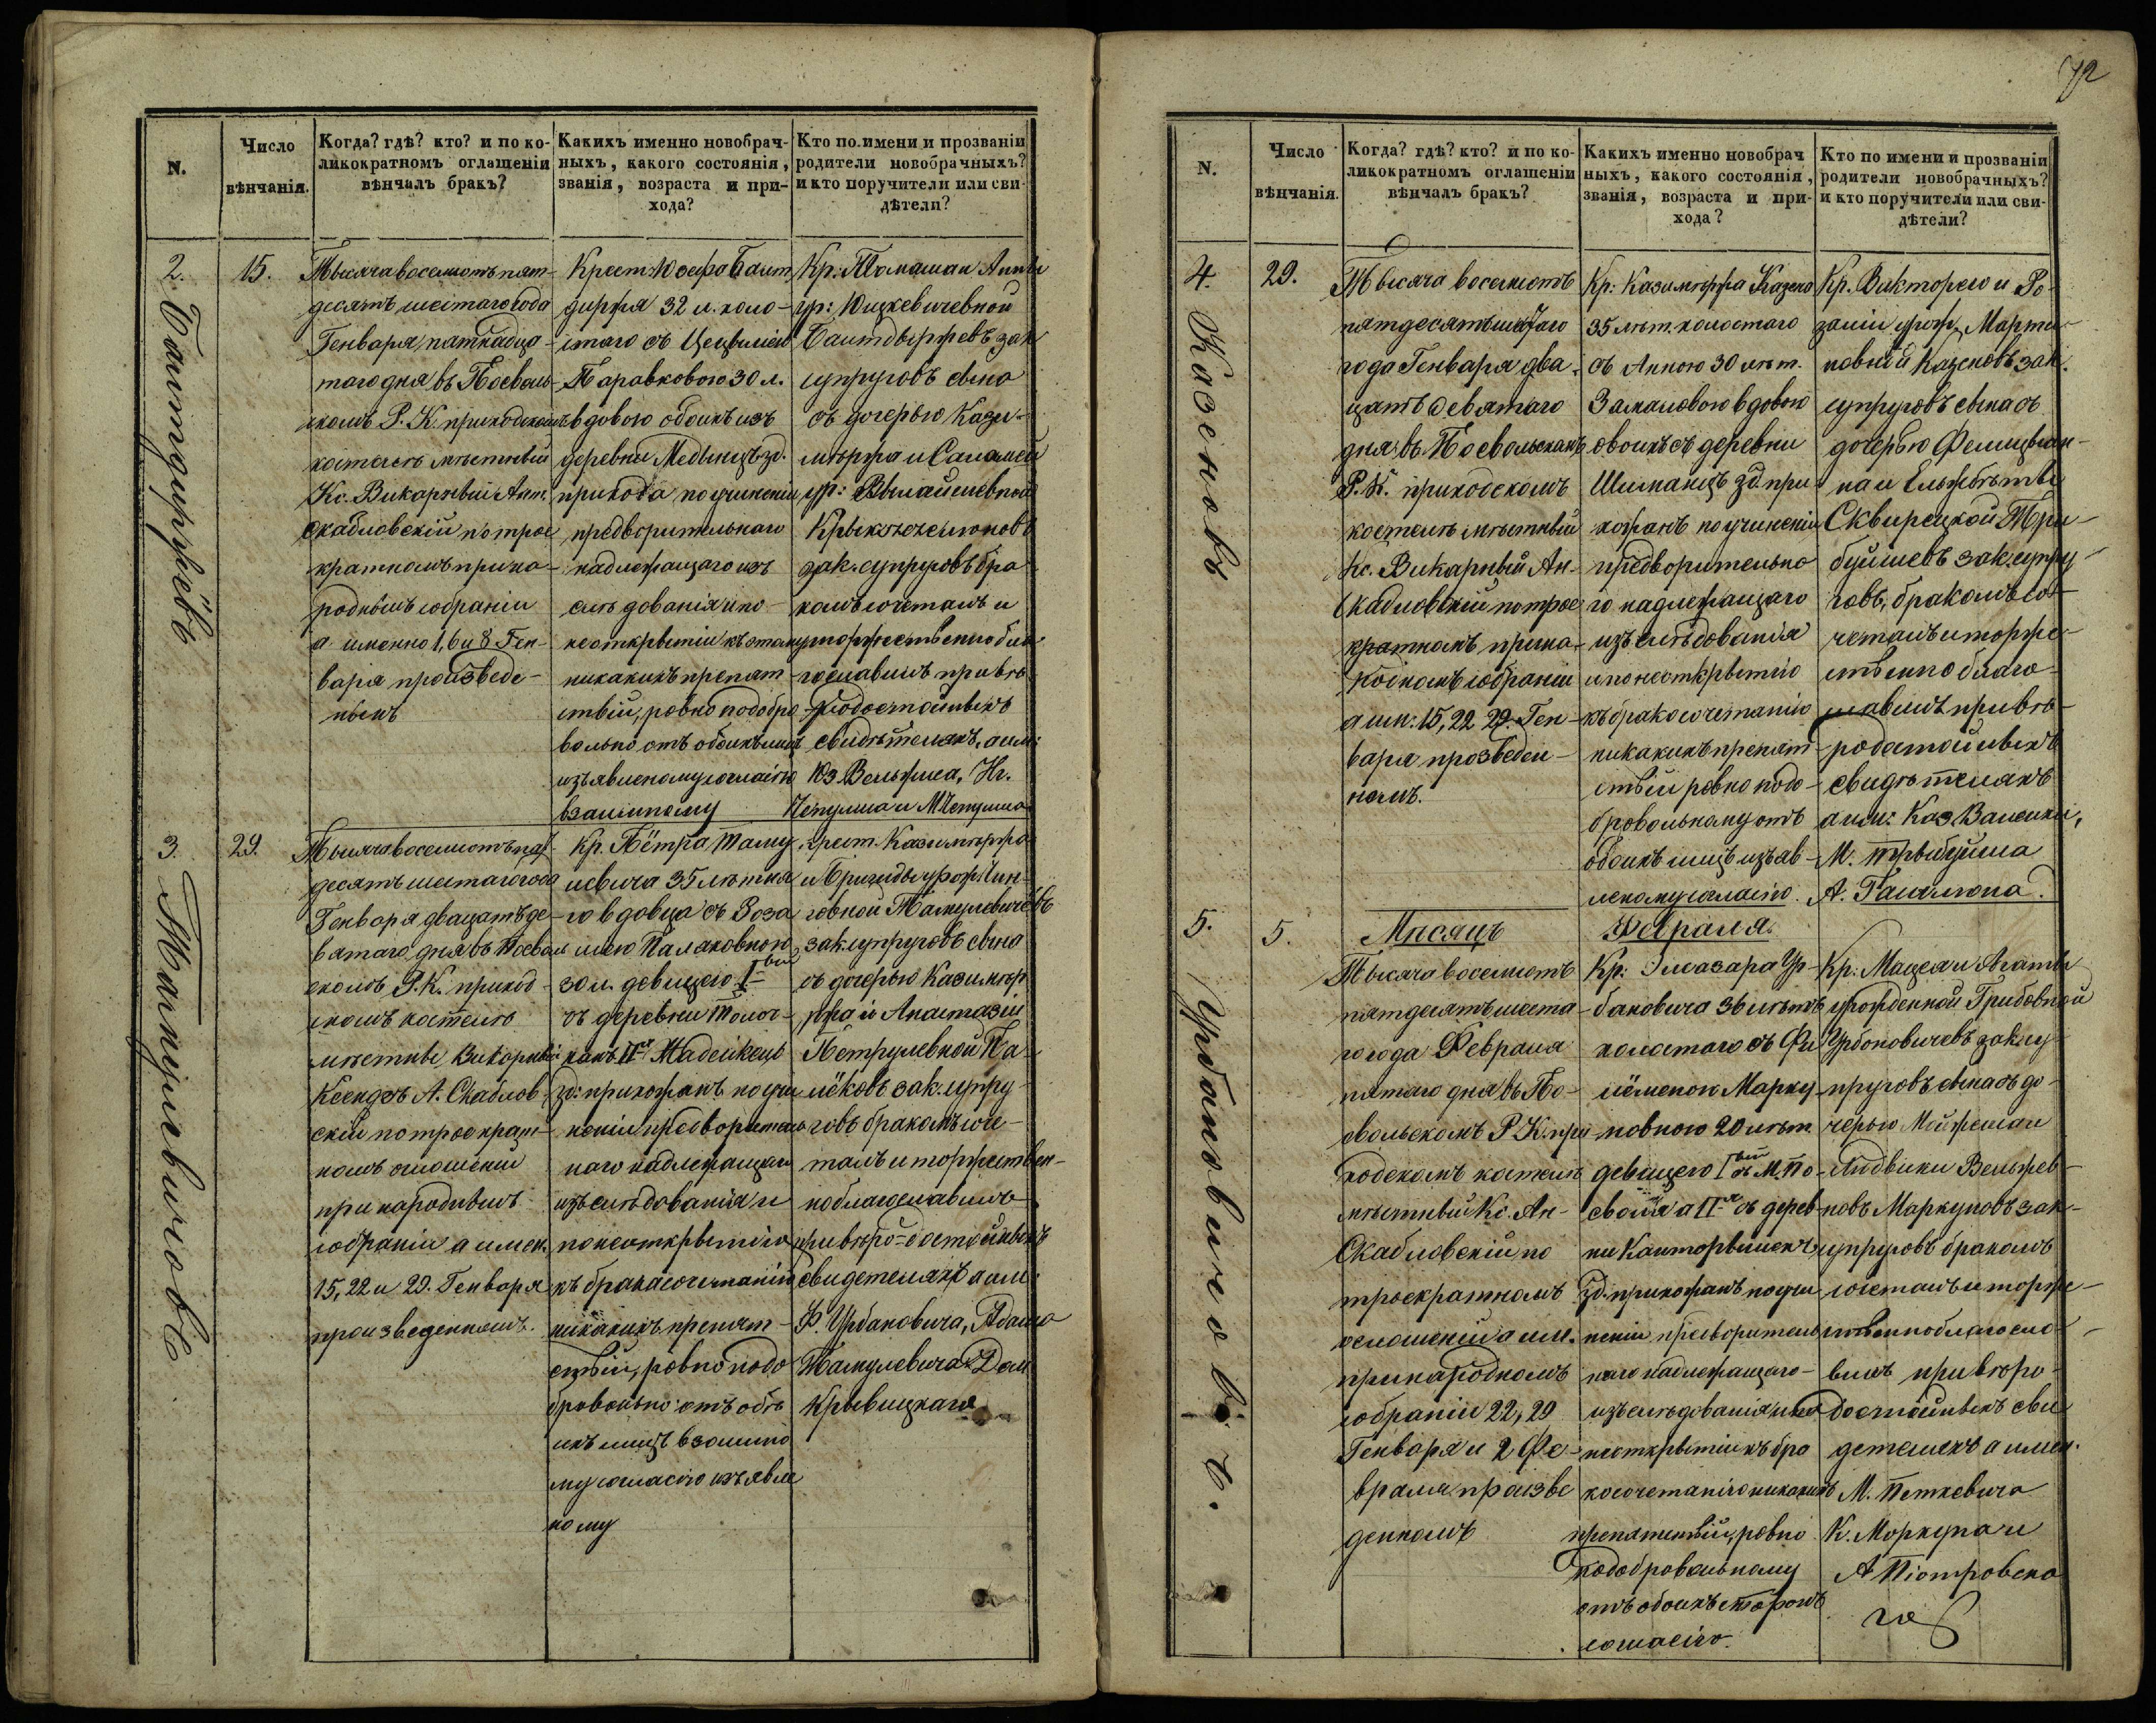 N.
Число
вѣнчанія.
Когда? гдѣ? кто? и по ко-
ликократномъ оглашеніи
вѣнчалъ бракъ?
Какихъ именно новобрач-
ныхъ, какого состоянія,
званія, возраста и при-
хода?
Кто по имени и прозванію
родители новобрачныхъ?
и кто поручители или сви-
дѣтели?
2.
15.
Тысяча восемсотъ пят-
десятъ шестаго года
Генваря пятнадца-
таго дня въ Посволь-
скомъ Р. К. приходскомъ
костелѣ мѣстный
Кс. Викарный Ант.
Скабловскій по трое
кратномъ при на-
родныхъ собраніи
а именно 1, 6 и 8 Ген-
варя произведе-
ныхъ
Крест. Юзефа Баит
диржя 32 л. холо-
стаго съ Цецилією
Паравковою 30 л.
вдовою обоихъ изъ
деревни Медынцъ зд.
прихода по учиненіи
предворительнаго
надлежащаго изъ
слѣдованія и по
неоткрытіи къ этому
никакихъ препят-
ствій, ровно подобро
вольно отъ обоихъ лицъ
изъявленому согласію
взаимному
Кр. Томашаи Анны
ур: Юцкевичевной
Баитдыржевъ зак
супруговъ сына
съ дочерью Кази-
мѣржа и Саломеи
зак. супруговъ бра
комъ сочеталъ и
торжественно бла
гославилъ при вѣ
родостойныхъ
свидѣтеляхъ, а им:
Юз. Вельжиса,
3.
29.
Тысяча восемсотъ пят
десятъ шестаго года
Генваря двацатъ де-
вятаго дня въ Посволь
скомъ Р. К. приход-
скомъ костелѣ
мѣстны Викорный
Ксендзъ А. Скаблов-
скій по троекрат-
номъ оглошеніи
при народныхъ
собраніи а имен.
15, 22 и 29. Генваря
произведенномъ.
Кр. Пётра Таму
левича 35 лѣтня
го вдовца съ Роза
лією Палаковною
30 л. девицею I-вый
съ деревни
IIя Мадейкецъ
зд: прихожанъ по учи
неніи предворитель
наго надлежащаго
изъслѣдованія и
по неоткрытію
къ бракасочетанію
никакихъ препят-
ствій, ровно подо
бровольно отъ обѣ
ихъ лицъ взаимно
му согласію изъявле
ному
Крест. Казимѣржа
и Бригиды урож.
Тамулевичевъ
зак супруговъ сына
съ дочерью Казимѣр
жа и Анастазіи
Петрулевной Па
лёковъ зак. супру
говъ бракомъ соче-
талъ и торжествен-
но благославилъ
при вѣро-достойныхъ
свидетеляхъ а им:
Ф. Урбановича, Адама
Тамулевича Дом
Крывицкаго
Баитдиржёвъ
Тамулевичовъ
72
N.
Число
вѣнчанія.
Когда? гдѣ? кто? и по ко-
ликократномъ оглашеніи
вѣнчалъ бракъ?
Какихъ именно новобрач
ныхъ, какого состоянія,
званія, возраста и при-
хода?
Кто по имени и прозваніи
родители новобрачныхъ?
и кто поручители или сви-
дѣтели?
4.
29.
Тысяча восемсотъ
пятдесятъ шестаго
года Генваря два
цатъ девятаго
дня въ Посвольскомъ
Р. К. приходскомъ
костелѣ мѣстный
Кс. Викарный Ан-
Скабловскій по трое
кратномъ при на-
родномъ собраніи
а им: 15, 22 29. Ген-
варя прозведен-
номъ.
Кр: Казимѣржа Казена
35 лѣт. холостаго
съ Анною 30 лѣт.
вдовою
обоихъ съ деревни
Шиманцъ зд. при
хожанъ по учиненіи
предворительно
го надлежащаго
изъслѣдованія
и по неоткрытію
къ бракосочетанію
никакихъ препят-
ствій ровно подо-
бровольному отъ
обоихъ лицъ изъяв-
леному согласію.
Кр. Викторею и Ро-
заліи урож. Марти-
новной Казеновъ зак.
супруговъ сына съ
дочерью Фелиціан-
на и Ельжбѣты
Сквирецкой Три-
буйшевъ зак. супру
говъ, бракомъ со-
четалъ и торже-
ственно благо-
славилъ при вѣ-
родостойныхъ
свидѣтеляхъ
а им: Каз. Валецки,
М. Трыбуйша
5.
5.
Мисяцъ
Февраля.
Тысяча восемсотъ
пятдесятъ шеста-
го года Февраля
пятаго дня въ По-
свольскомъ Р. К. при
ходскомъ костелѣ
мѣстный Кс. Ан-
Скабловскій по
троекратномъ
оглошеніи а им.
при народномъ
собраніи 22, 29
Генваря и 2 Фе-
враля произве
денномъ
Кр: Элеазара Ур-
бановича 36 лѣтъ
холостаго съ Фи
лёменою Марку-
новною 20 лѣт
девицею Iвый съ М. По-
сволія а IIя съ дерев-
ни
зд. прихожанъ по учи
неніи предворитель
наго надлежащаго
изъслѣдованія и по
неоткрытіи къ бра
косочетанію никакихъ
препятствій, ровно
подобровольному
отъ обоихъ сторонъ
согласію.
Кр: Мацея и Агаты
урожденной Грибовной
Урбоновичевъ зак су-
пруговъ сына съ до-
черью
Людвики Вельжев-
новъ Маркуновъ зак-
супруговъ бракомъ
сочеталъ и торже-
ственно благосло-
вилъ при вѣро-
достойныхъ сви
детеляхъ а имен.
М. Петкевича
К. Моркуна и
А Піотровска
го
Казеновъ
Урбановичовъ.